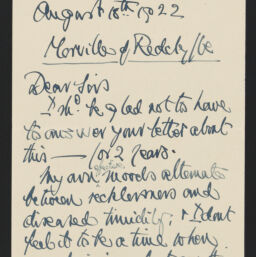 August 18th 1922
Morville of Redclyffe
Dear Sirs
I shd. be glad not to have
to answer your letter about
this — for 2 years.
My own moods alternate
between recklessness and
diseased timidity; & I dont
feel it to be a time when